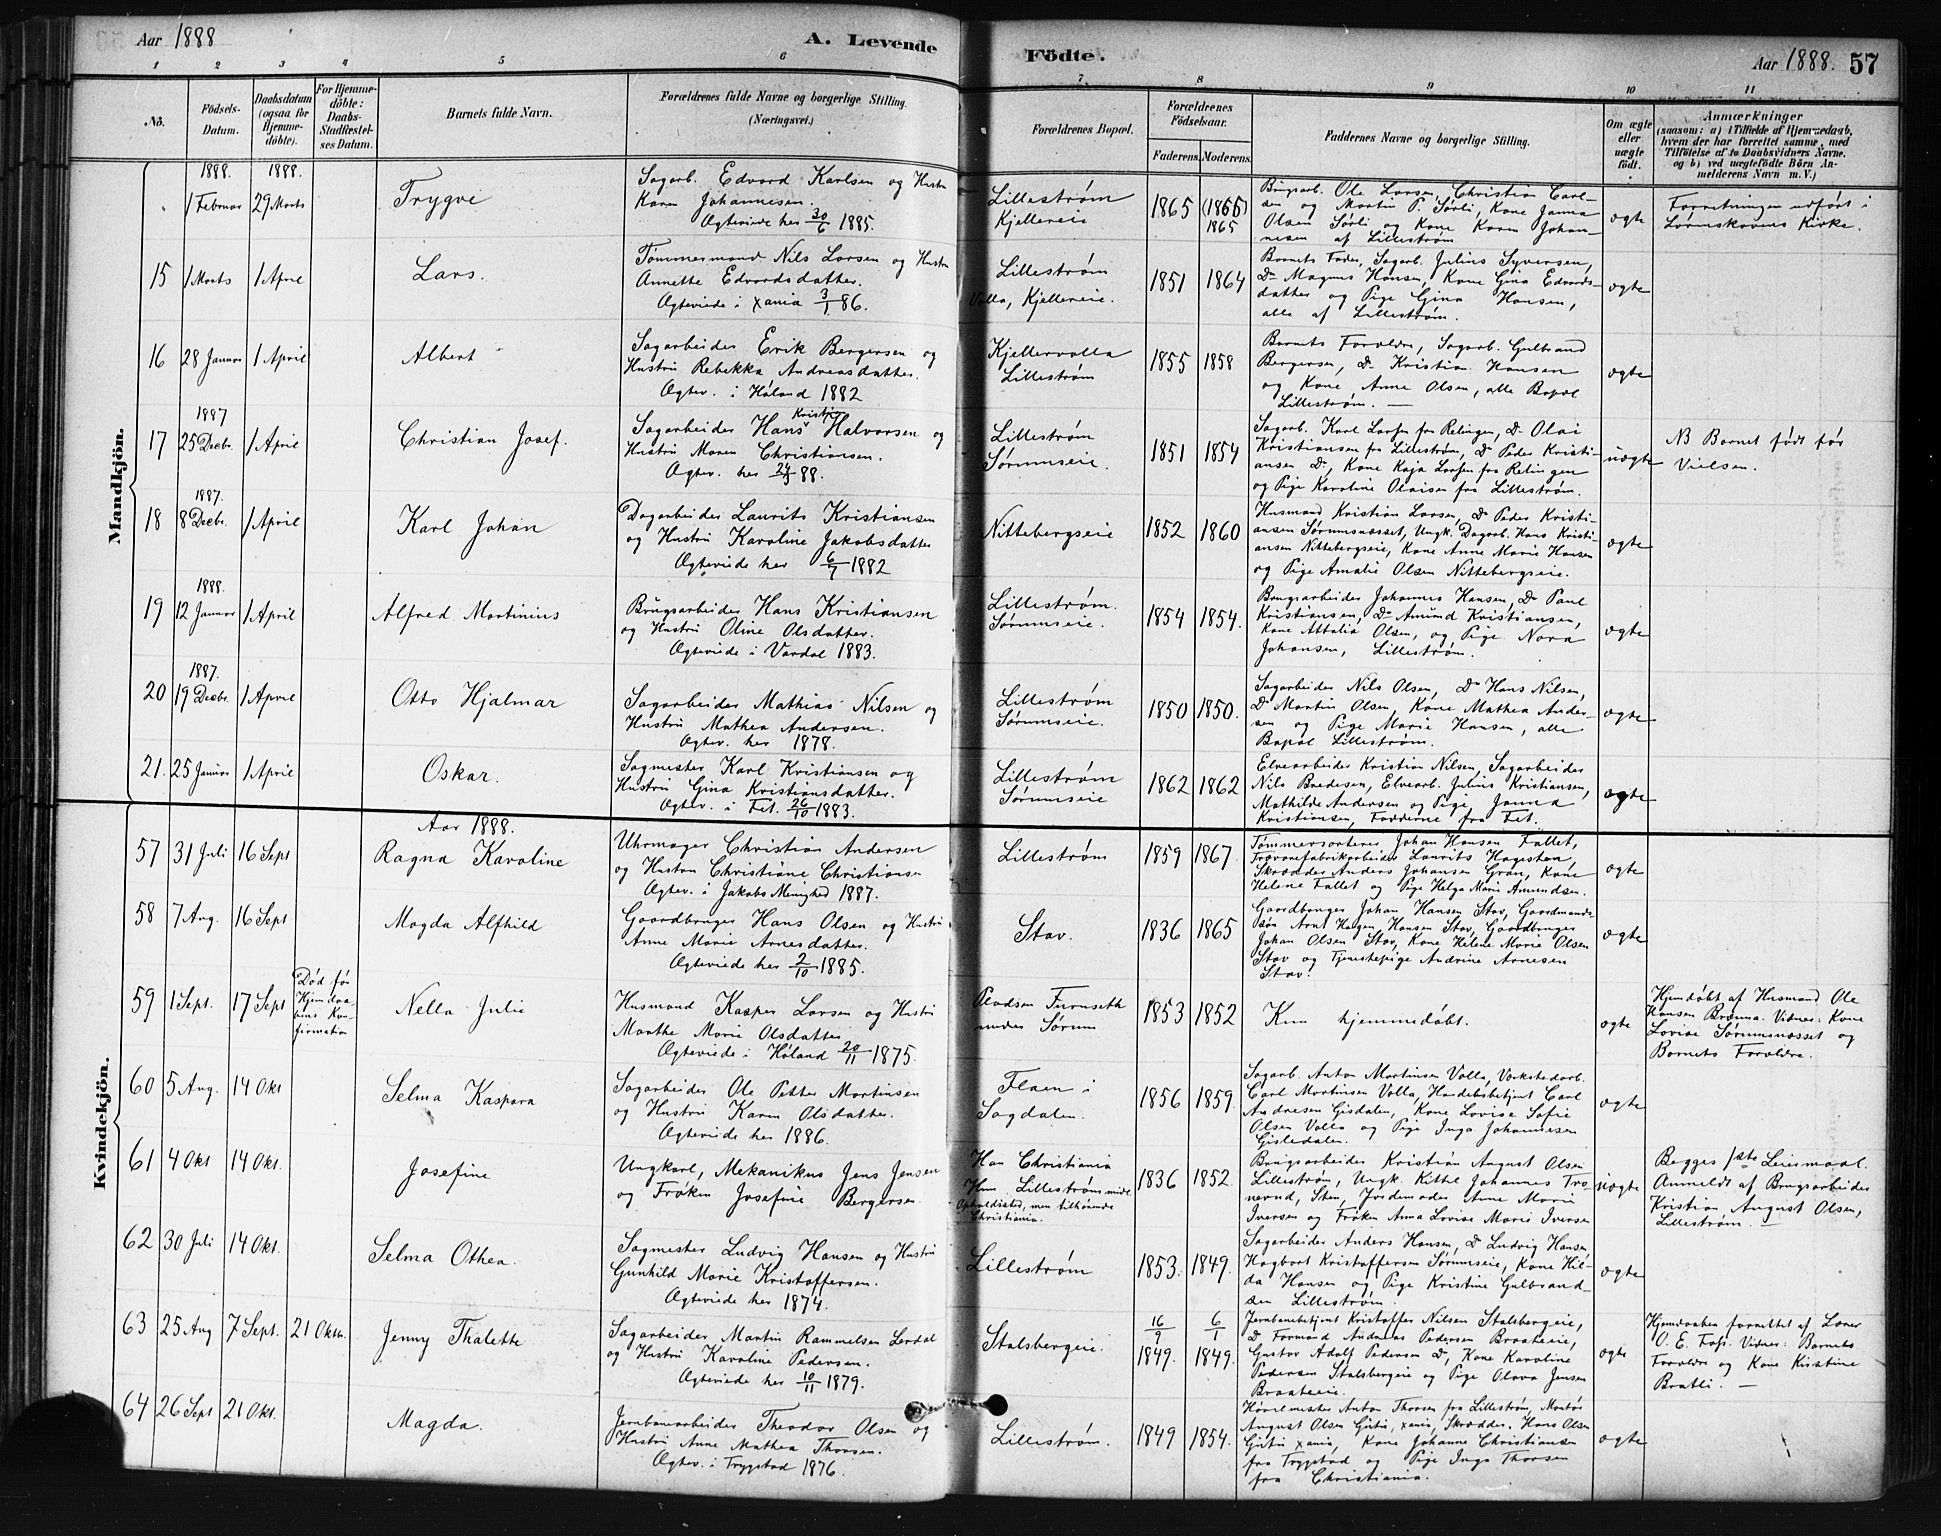 Aar 1888
A. Levende
Födte.
Aar 1888. 57
1 2 3 4 5 6 7 8 9 10 11
No.
Födsels-Datum.
Daabsdatum (ogsaa för Hjemme-döbte).
For Hjemme-döbte: Daabs-Stadfæstel-ses Datum.
Barnets fulde Navn.
Forældrenes fulde Navne og borgerlige Stilling. (Næringsvei.)
Forældrenes Bopæl.
Forældrenes Födselsaar.
Faderens. Moderens.
Faddernes Navne og borgerlige Stilling.
Om ægte eller uægte født.
Anmærkninger
(saasom: a) i Tilfælde af Hjemmedaab, hvem der har forrettet samme, med Tilföielse af to Daabsvidners Navne. og b) ved uægtefödte Börn An-melderens Navn m. V.)
Mandkjön.
1888. 1888.
1 Februar 29 Marts Trygve
Sagarb. Edvard Karlsen og Hustru
Karen Johannesen.
Ægteviede her 30/6 1885.
Lillestrøm
Kjellereie
1865 (1865) 1865
Brugsarb. Ole Larsen, Christian Carl-
sen og Martin P. Sørli, Kone Janna
Olsen Sørli og Kone Karen Johan-
nesen af Lillestrøm
ægte
Forretningen udført i
Lørenskovens Kirke.
15 1 Marts 1 April Lars.
Tømmermand Nils Larsen og Hustru
Annette Edvardsdatter.
Ægteviede i Xania 3/1 86.
Lillestrøm
Volla, Kjellereie.
1851 1864
Barnets Fader, Sagarb. Julius Syversen,
Do Magnus Hansen, Kone Gina Edvards-
datter og Pige Gina Hansen,
alle af Lillestrøm.
ægte
16 28 Januar 1 April Albert
Sagarbeider Erik Bergersen og
Hustru Rebekka Andreasdatter.
Ægtev. i Høland 1882
Kjellervolla
Lillestrøm
1855 1858
Barnets Forældre, Sagarb. Gulbrand
Bergersen, Do Kristian Hansen
og Kone Anne Olsen, alle Bopæl
Lillestrøm. —
ægte
1887
17 25 Decbr. 1 April Christian Josef.
Sagarbeider Hans Kristian Halvorsen og
Hustru Maren Christiansen.
Ægtev. her 24/3 88.
Lillestrøm
Sørumseie.
1851 1854
Sagarb. Karl Larsen fra Relingen, Do Olai
Kristiansen fra Lillestrøm, Do Peder Kristi-
ansen Do, Kone Kaja Larsen fra Relingen
og Pige Karoline Olaisen fra Lillestrøm.
uægte
NB Barnet født før
Vielsen.
1887.
18 8 Decbr. 1 April Karl Johan
Dagarbeider Laurits Kristiansen
og Hustru Karoline Jakobsdatter
Ægteviede her 6/7 1882
Nittebergseie
1852 1860
Husmand Kristian Larsen, Do Peder Kristi-
ansen Sørumsnæsset, Ungk. Dagarb. Hans Kristi-
ansen Nittebergseie, Kone Anne Marie Hansen
og Pige Amalie Olsen Nittebergseie.
ægte
1888.
19 12 Januar 1 April Alfred Martinius
Brugsarbeider Hans Kristiansen
og Hustru Oline Olsdatter.
Ægteviede i Vardal 1883.
Lillestrøm.
Sørumseie.
1854 1854.
Brugsarbeider Johannes Hansen, Do Paul
Kristiansen, Do Amund Kristiansen,
Kone Attalia Olsen, og Pige Nora
Johansen, Lillestrøm.
ægte
1887.
20 19 Decbr. 1 April Otto Hjalmar
Sagarbeider Mathias Nilsen og
Hustru Mathea Andersen.
Ægtev. her 1878.
Lillestrøm
Sørumseie.
1850 1850.
Sagarbeider Nils Olsen, Do Hans Nilsen,
Do Martin Olsen, Kone Mathea Ander-
sen og Pige Marie Hansen, alle
Bopæl Lillestrøm.
ægte
21. 25 Januar 1 April Oskar.
Sagmester Karl Kristiansen og
Hustru Gina Kristiansdatter.
Ægtev. i Fet. 26/10 1883.
Lillestrøm
Sørumseie
1862 1862
Elvearbeider Kristian Nilsen, Sagarbeider
Nils Bredesen, Elvearb. Julius Kristiansen,
Mathilde Andersen og Pige Janna
Kristiansen, Fadderne fra Fet.
ægte
Kvindekjön.
Aar 1888.
57 31 Juli 16 Sept Ragna Karoline
Uhrmager Christian Andersen
og Hustru Christiane Christiansen
Ægtev. i Jakobs Menighed 1887.
Lillestrøm
1859 1867
Tømmersorterer Johan Hansen Fallet,
Trævarefabrikarbeider Laurits Hagestea,
Skrædder Anders Johansen Gran, Kone
Helene Fallet og Pige Helga Marie Amundsen.
ægte
58 7 Aug. 16 Sept Magda Alfhild
Gaardbruger Hans Olsen og Hustru
Anne Marie Arnesdatter.
Ægteviede her 2/10 1885.
Stav.
1836 1865
Gaardbruger Johan Hansen Stav, Gaardmands-
søn Arnt Hagen Hansen Stav, Gaardbruger
Johan Olsen Stav, Kone Helene Marie Olsen
Stav og Tjenestepige Andrine Arnesen
Stav.
ægte
59 1 Sept. 17 Sept
Død før
Hjemdaa-
bens Kon-
firmation
Nella Julie
Husmand Kasper Larsen og Hustru
Marthe Marie Olsdatter
Ægteviede i Høland 20/11 1875.
Pladsen Furuseth
under Sørum
1853 1852
Kun hjemmedøbt.
ægte
Hjemdøbt af Husmand Ole
Hansen Brænna. Vidner: Kone
Lovise Sørumsnæsset og
Barnets Forældre.
60 5 Aug. 14 Okt Selma Kaspara
Sagarbeider Ole Petter Martinsen
og Hustru Karen Olsdatter.
Ægteviede her 1886.
Flaen i
Sagdalen.
1856 1859.
Sagarb. Anton Martinsen Volla, Værkstedarb.
Carl Martinsen Volla, Handelsbetjent Carl
Andresen Gisdalen, Kone Lovise Sofie
Olsen Volla og Pige Inga Johannesen
Gisledalen.
ægte
61 4 Okt 14 Okt. Josefine
Ungkarl, Mekanikus Jens Jensen
og Frøken Josefine Bergersen.
Han Christiania
Hun Lillestrøm midl.
Opholdssted, men tilhørende
Christiania.
1836 1852.
Brugsarbeider Kristian August Olsen
Lillestrøm, Ungk. Kittel Johannes Tro-
nerud, Sten, Jordemoder Anne Marie
Iversen og Frøken Anna Lovise Marie Iversen
uægte
Begges 1ste Leiermaal.
Anmeldt af Brugsarbeider
Kristian August Olsen,
Lillestrøm. —
62 30 Juli 14 Okt. Selma Othea.
Sagmester Ludvig Hansen og Hustru
Gunhild Marie Kristoffersen.
Ægteviede her 1874.
Lillestrøm
1853. 1849.
Sagarbeider Anders Hansen, Do Ludvig Hansen,
Hagbart Kristoffersen Sørumseie, Kone Hil-
da Hansen og Pige Kristine Gulbrand-
sen Lillestrøm.
ægte
63 25 Aug 7 Sept. 21 Oktn. Jenny Thalette
Sagarbeider Martin Rammelsen Lerdal
og Hustru Karoline Pedersen.
Ægteviede her 10/11 1879.
Stalsbergeie.
16/9 1849. 6/1 1849.
Jernbanebetjent Kristoffer Nilsen Stalsbergeie,
Do Formand Andreas Pedersen Braateeie,
Gustav Adolf Pedersen Do, Kone Karoline
Pedersen Stalsbergeie og Pige Olava Jensen
Braateeie.
ægte
Hjemdaaben forrettet af Lærer
O. E. Foss. Vidner: Barnets
Forældre og Kone Kirstine
Bratli. —
64 26 Sept 21 Okt. Magda.
Jernbanearbeider Theodor Olsen og
Hustru Anne Mathea Thorsen.
Ægtev. i Trygstad 1876.
Lillestrøm.
1849 1854.
Høvlemester Anton Thorsen fra Lillestrøm, Montør
August Olsen Gjøtis, Xania, Skrædder Hans Olsen
Gjøtis Xania, Kone Johanne Christiansen
fra Trygstad og Pige Inga Thorsen
fra Christiania.
ægte